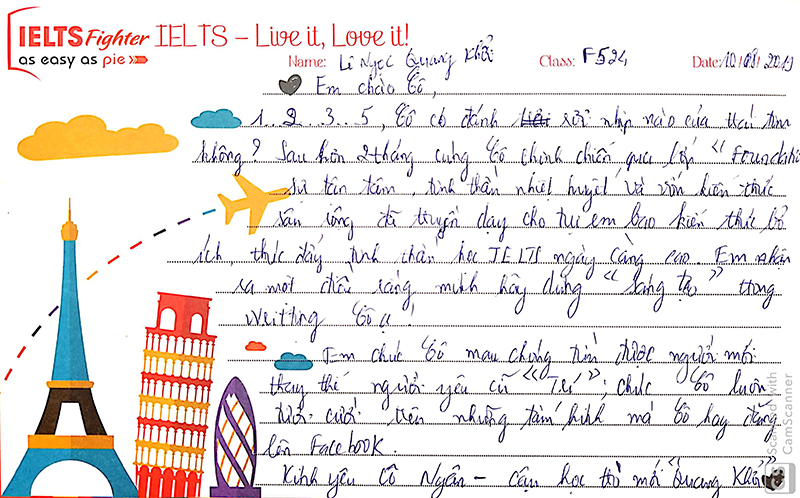 IELTS Fighter IELTS – Live it, Love it!
as easy as pie
Name: Lê Ngọc Quang Khải Class: F524 Date: 10/08/2019
Em chào Cô,
1..2...3..5, Cô có đánh rơi nhịp nào của trái tim
không? Sau hơn 2 tháng cùng Cô chinh chiến qua lớp "Foundation
sự tận tâm, tinh thần nhiệt huyết và vốn kiến thức
sâu rộng đã truyền dạy cho tụi em bao kiến thức bổ
ích, thúc đẩy tinh thần học IELTS ngày càng cao. Em nhận
ra một điều rằng mình hãy dùng "sáng tạo" trong
Writting Cô ạ.
Em chúc Cô mau chóng tìm được người mới
thay thế người yêu cũ "Tú"; chúc Cô luôn
tươi cười trên những tấm hình mà Cô hay đăng
lên Facebook.
Kính yêu Cô Ngân – cậu học trò mới "Quang Khải"
Scanned with
CamScanner